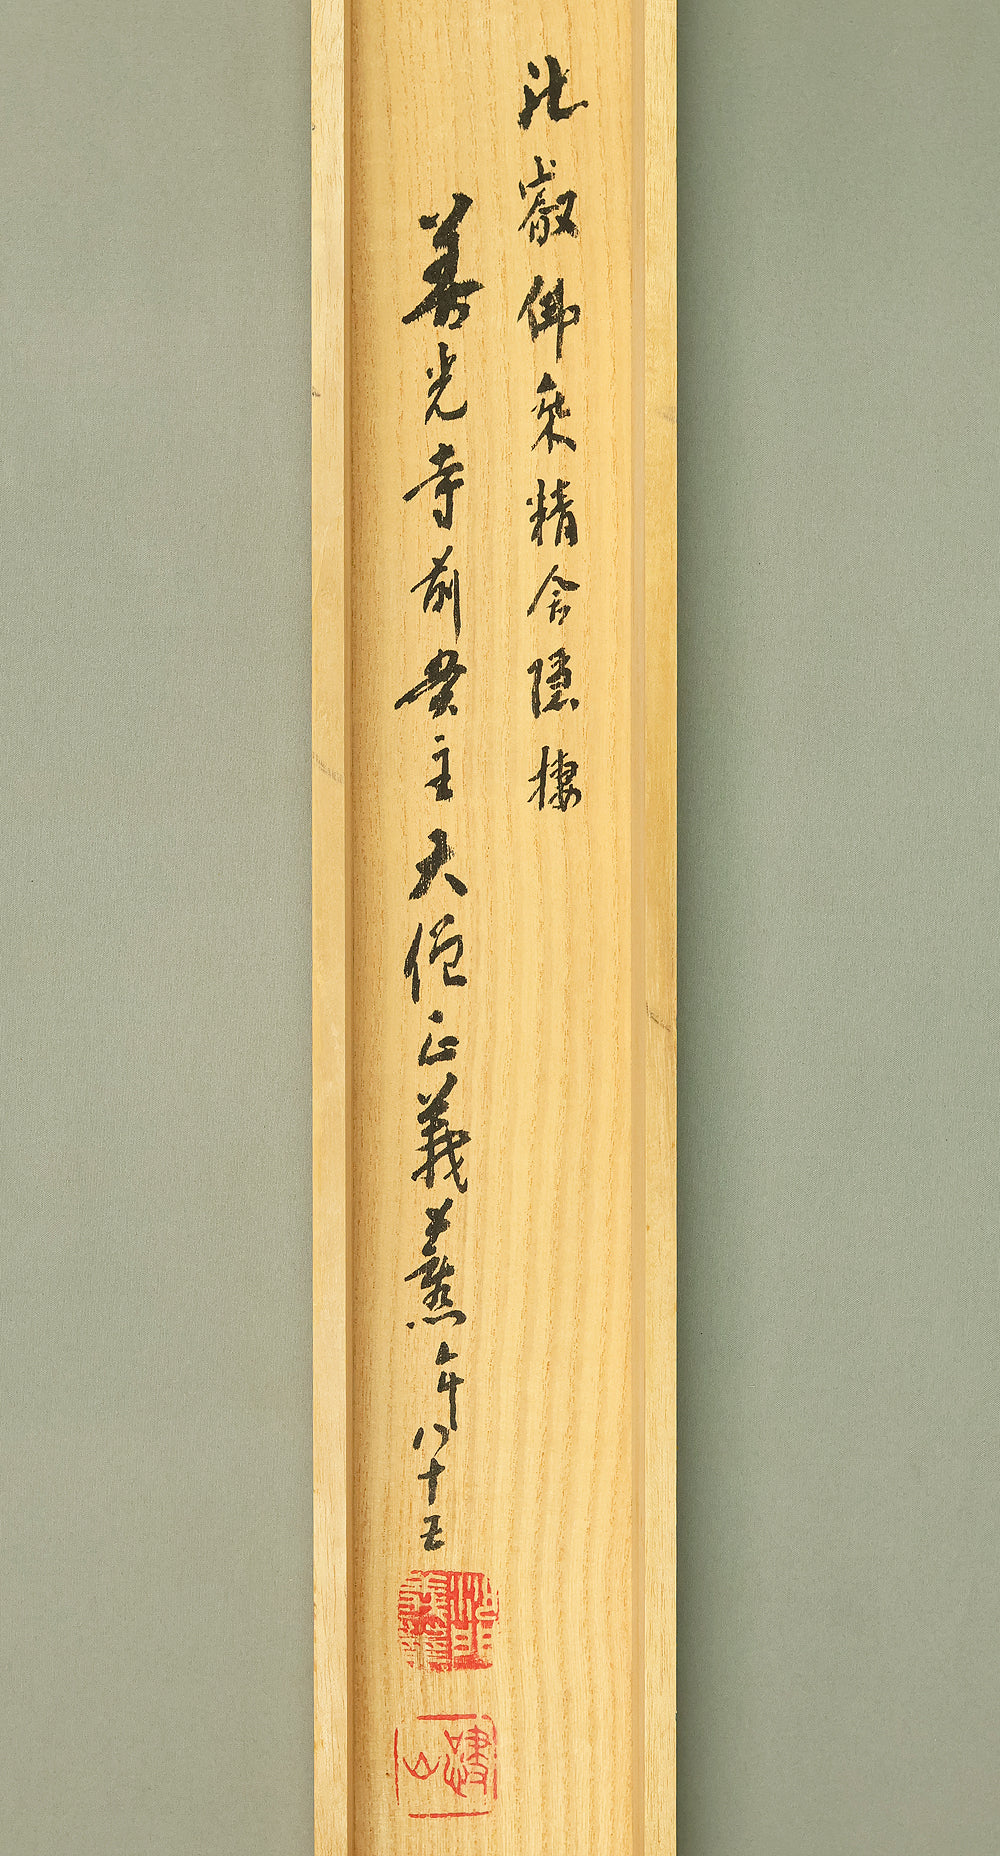 比叡佛乗精舎隠棲
善光寺前貫主大僧正義年八十五